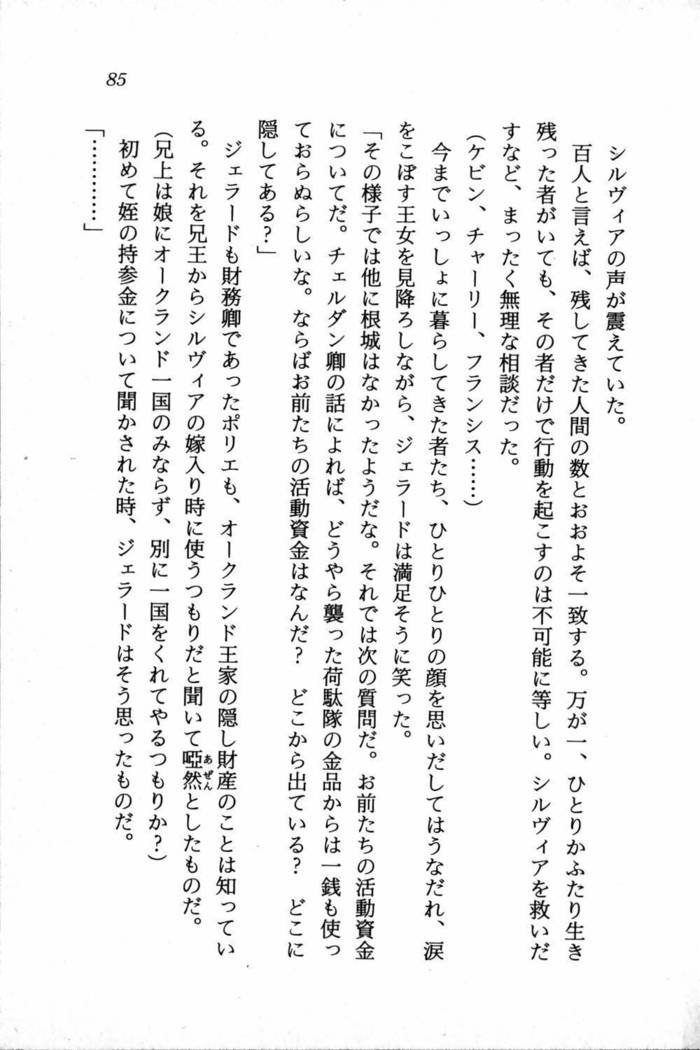 85
シルヴィアの声が震えていた。
百人と言えば、残してきた人間の数とおおよそ一致する。万が一、ひとりかふたり生き
残った者がいても、その者だけで行動を起こすのは不可能に等しい。シルヴィアを救いだ
すなど、まったく無理な相談だった。
(ケビン、チャーリー、フランシス……)
今までいっしょに暮らしてきた者たち、ひとりひとりの顔を思いだしてはうなだれ、涙
をこぼす王女を見降ろしながら、ジェラードは満足そうに笑った。
「その様子では他に根城はなかったようだな。それでは次の質問だ。お前たちの活動資金
についてだ。チェルダン卿の話によれば、どうやら襲った荷駄隊の金品からは一銭も使っ
ておらぬらしいな。ならばお前たちの活動資金はなんだ? どこから出ている? どこに
隠してある?」
ジェラードも財務卿であったポリエも、オークランド王家の隠し財産のことは知ってい
る。それを兄王からシルヴィアの嫁入り時に使うつもりだと聞いて啞然としたものだ。
あぜん
(兄上は娘にオークランド一国のみならず、別に一国をくれてやるつもりか?)
初めて姪の持参金について聞かされた時、ジェラードはそう思ったものだ。
「…………」